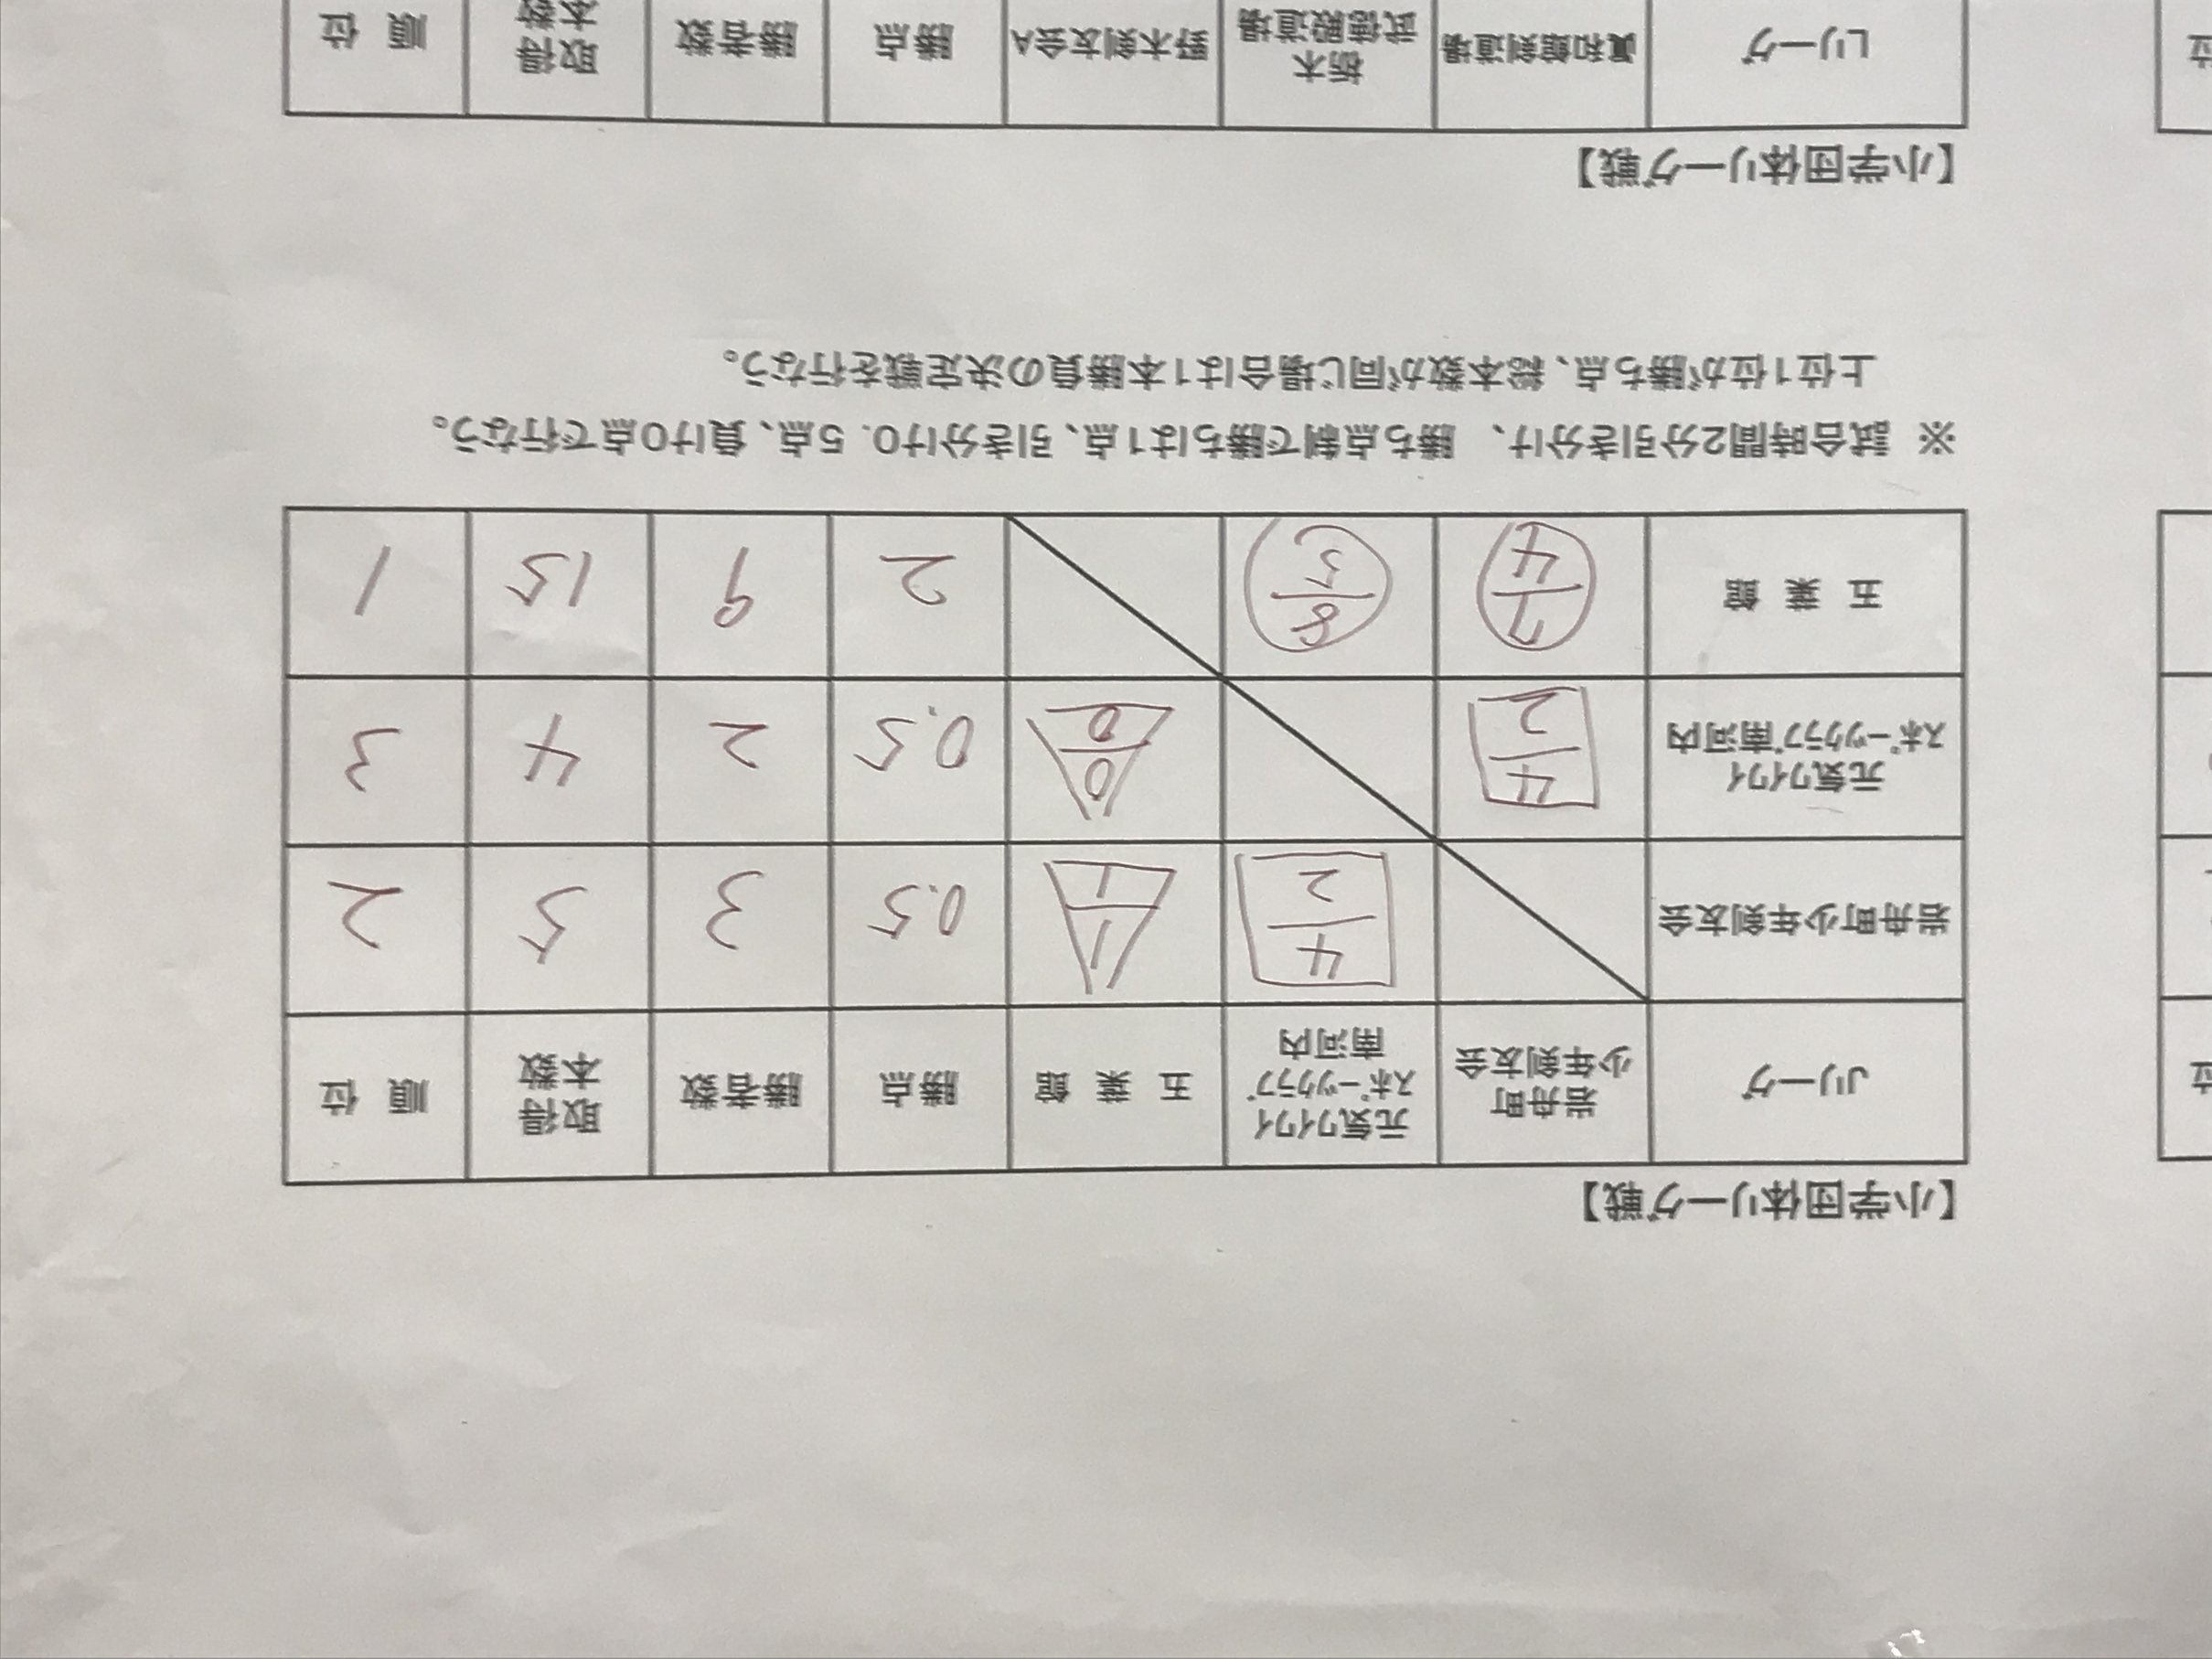 【小学団体リーグ戦】
Jリーグ 岩舟町少年剣友会 元気ワイワイスポーツクラブ南河内 五葉館 勝点 勝者数 取得本数 順位
岩舟町少年剣友会 4/2 1/1 0.5 3 5 2
元気ワイワイスポーツクラブ南河内 4/2 0/0 0.5 2 4 3
五葉館 7/4 8/5 2 9 15 1
※ 試合時間2分引き分け、 勝ち点制で勝ちは1点、引き分け0.5点、負け0点で行なう。
上位1位が勝ち点、総本数が同じ場合は1本勝負の決定戦を行なう。
【小学団体リーグ戦】
Lリーグ 眞和館剣道場 栃木武徳殿道場 野木剣友会A 勝点 勝者数 取得本数 順位